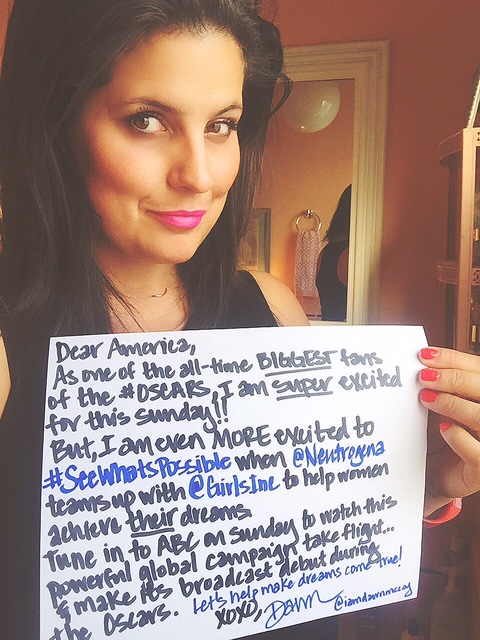 Dear America,
As one of the all-time BIGGEST fans
of the #OSCARS, I am super excited
for this sunday!!
But, I am even MORE excited to
#SeeWhatsPossible when @Neutrogena
teams up with @GirlsInc to help women
achieve their dreams
Tune in to ABC on Sunday to watch this
powerful global campaign take flight...
& make its broadcast debut during
the Oscars. Let's help make dreams come true!
XOXO, Dawn @iamdawnmccoy